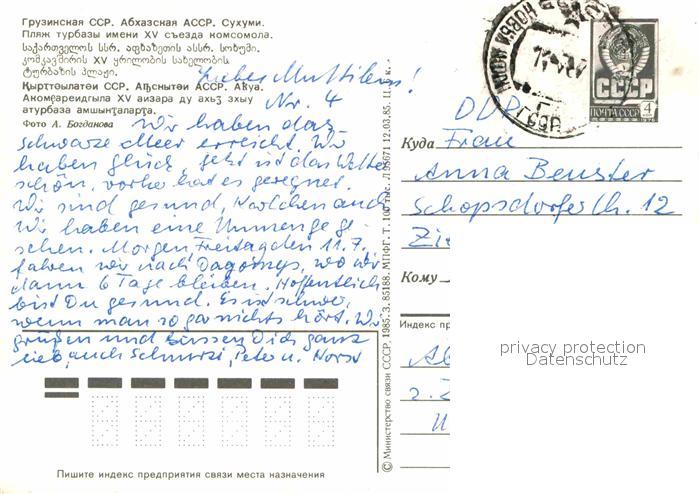 Грузинская ССР. Абхазская АССР. Сухуми.
Пляж турбазы имени XV съезда комсомола.
საქართველოს სსრ. აფხაზეთის ასსრ. სოხუმი.
კომკავშირის XV ყრილობის სახელობის
ტურბაზის პლაჟი.
Қырҭтәылатәи ССР. Аҧснытәи АССР. Аҟуа.
Фото А. Богданова
Liebes Muttilein!
Nr. 4
Wir haben das
schwarze Meer erreicht. Wir
haben Glück, jetzt ist das Wetter
schön, vorher hat es geregnet.
Wir sind gesund, auch
Wir haben eine Unmenge ge-
sehen. Morgen, Freitag den 11.7.
fahren wir nach Dagomys, wo wir
dann 6 Tage bleiben. Hoffentlich
bist Du gesund. Es ist schwer,
wenn man so gar nichts hört. Wir
grüßen und küssen Dich ganz
lieb, auch Schnurzi, Peter u. Horst
Пишите индекс предприятия связи места назначения
© Министерство связи СССР, 1985. З. 85188. МПФГ. Т. 100 тыс. 12.03.85. Ц. к.
СССР
ПОЧТА СССР 4
DDR
Куда Frau
Anna Beuster
Schopsdorfer Ch. 12
Zie
Кому
Индекс пр
privacy protection
Datenschutz